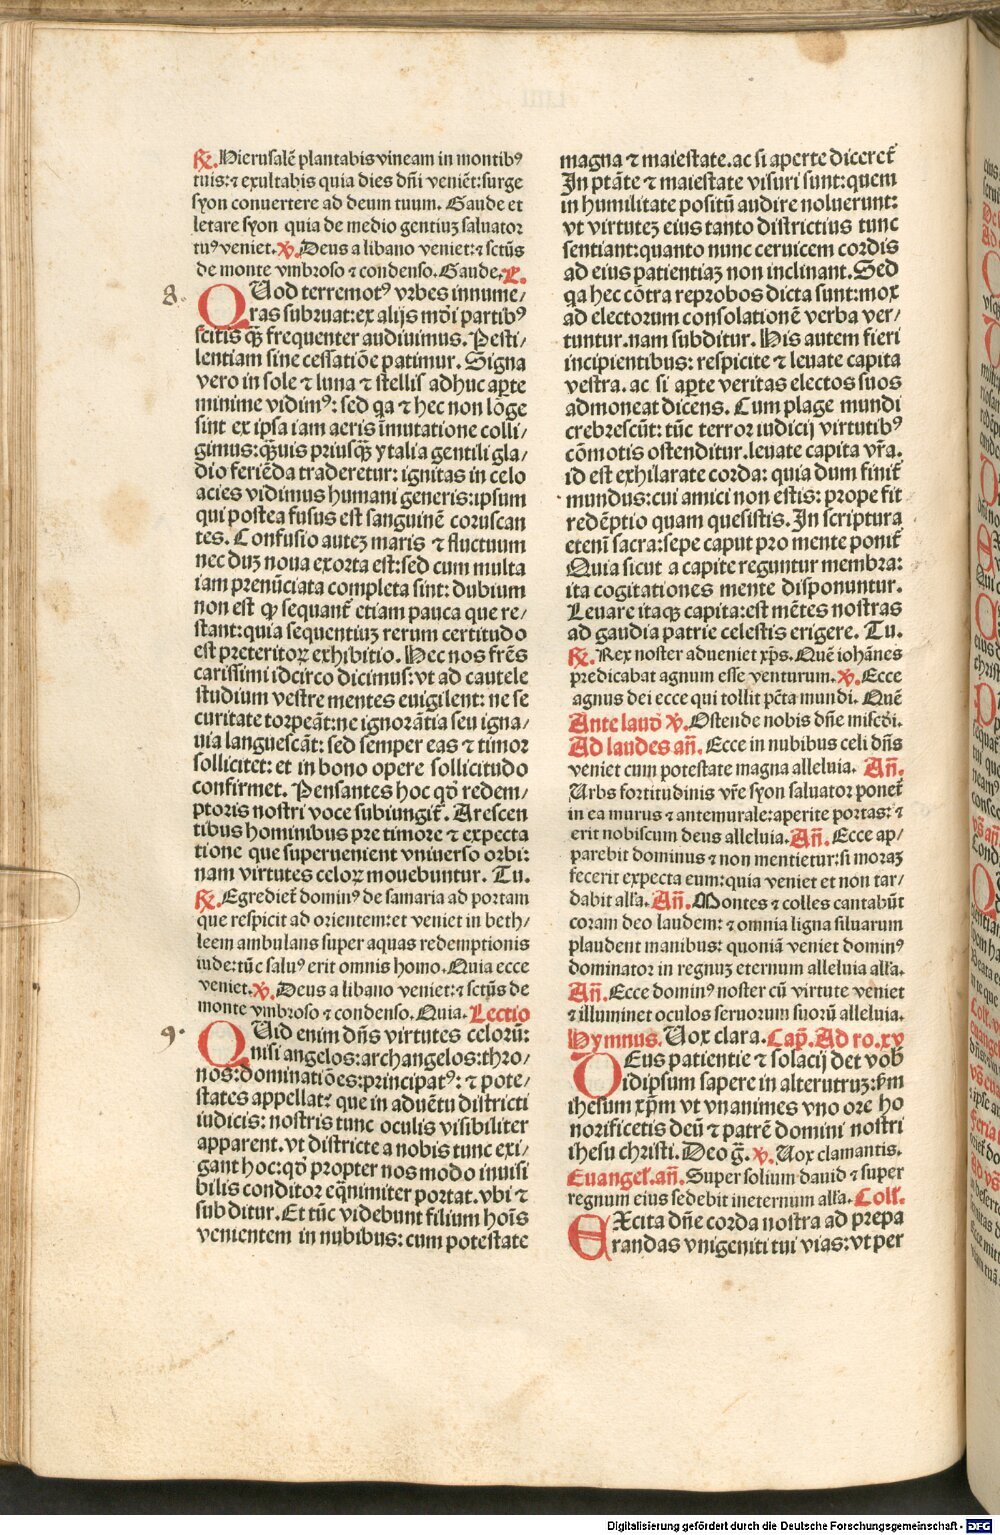 ℞. Hierusalē plantabis vineam in montibꝰ
tuis: ⁊ exultabis quia dies dn̄i veniēt: surge
syon conuertere ad deum tuum. Gaude et
letare syon quia de medio gentiuꝫ saluator
tuꝰ veniet. ℣. Deus a libano veniet: ⁊ sctūs
de monte vmbroso ⁊ condenso. Gaude. L.
8.
QUod terremotꝰ vrbes innume/
ras subruat: ex alijs mōi partibꝰ
scitis qꝫ frequenter audiuimus. Pesti/
lentiam sine cessatiōe patimur. Signa
vero in sole ⁊ luna ⁊ stellis adhuc aꝑte
minime vidimꝰ: sed qa ⁊ hec non lōge
sint ex ipsa iam aeris īmutatione colli/
gimus: qꝫuis priusqꝫ ytalia gentili gla/
dio feriēda traderetur: ignitas in celo
acies vidimus humani generis: ipsum
qui postea fusus est sanguinē coruscan
tes. Confusio auteꝫ maris ⁊ fluctuum
nec duꝫ noua exorta est: sed cum multa
iam prenūciata completa sint: dubium
non est ꝙ sequant᷑ etiam pauca que re/
stant: quia sequentiuꝫ rerum certitudo
est preteritoꝝ exhibitio. Hec nos frēs
carissimi idcirco dicimus: vt ad cautele
studium vestre mentes euigilent: ne se
curitate torpeāt: ne ignorātia seu igna/
uia languescāt: sed semper eas ⁊ timor
sollicitet: et in bono opere sollicitudo
confirmet. Pensantes hoc qō redem/
ptoris nostri voce subiungit᷑. Arescen
tibus hominibus pre timore ⁊ expecta
tione que superuenient vniuerso orbi:
nam virtutes celoꝝ mouebuntur. Tu.
℞. Egrediet᷑ dominꝰ de samaria ad portam
que respicit ad orientem: et veniet in beth/
leem ambulans super aquas redemptionis
iude: tūc saluꝰ erit omnis homo. Quia ecce
veniet. ℣. Deus a libano veniet: ⁊ sctūs de
monte vmbroso ⁊ condenso. Quia. Lectio
9.
QUid enim dn̄s virtutes celorū:
nisi angelos: archangelos: thro/
nos: dominatiōes: principatꝰ: ⁊ pote/
states appellat᷑ que in aduētu districti
iudicis: nostris tunc oculis visibiliter
apparent. vt districte a nobis tunc exi/
gant hoc: qō propter nos modo inuisi
bilis conditor eqnimiter portat. vbi ⁊
subditur. Et tūc videbunt filium hoīs
venientem in nubibus: cum potestate
magna ⁊ maiestate. ac si aperte diceret᷑
In ptāte ⁊ maiestate visuri sunt: quem
in humilitate positū audire noluerunt:
vt virtuteꝫ eius tanto districtius tunc
sentiant: quanto nunc ceruicem cordis
ad eius patientiaꝫ non inclinant. Sed
qa hec cōtra reprobos dicta sunt: mox
ad electorum consolationē verba ver/
tuntur. nam subditur. His autem fieri
incipientibus: respicite ⁊ leuate capita
vestra. ac si aꝑte veritas electos suos
admoneat dicens. Cum plage mundi
crebrescūt: tūc terror iudicij virtutibꝰ
cōmotis ostenditur. leuate capita vr̄a.
id est exhilarate corda: quia dum finit᷑
mundus: cui amici non estis: prope fit
redēptio quam quesistis. In scriptura
etenī sacra: sepe caput pro mente ponit᷑
Quia sicut a capite reguntur membra:
ita cogitationes mente disponuntur.
Leuare itaqꝫ capita: est mētes nostras
ad gaudia patrie celestis erigere. Tu.
℞. Rex noster adueniet xp̄s. Quē iohānes
predicabat agnum esse venturum. ℣. Ecce
agnus dei ecce qui tollit pctā mundi. Quē
Ante laud̄ ℣. Ostende nobis dn̄e misc̄di.
Ad laudes an̄. Ecce in nubibus celi dn̄s
veniet cum potestate magna alleluia. An̄.
Urbs fortitudinis vr̄e syon saluator ponet᷑
in ea murus ⁊ antemurale: aperite portas: ⁊
erit nobiscum deus alleluia. An̄. Ecce ap/
parebit dominus ⁊ non mentietur: si moraꝫ
fecerit expecta eum: quia veniet et non tar/
dabit all'a. An̄. Montes ⁊ colles cantabūt
coram deo laudem: ⁊ omnia ligna siluarum
plaudent manibus: quoniā veniet dominꝰ
dominator in regnuꝫ eternum alleluia all'a.
An̄. Ecce dominꝰ noster cū virtute veniet
⁊ illuminet oculos seruorum suorū alleluia.
Hymnus. Uox clara. Cap̄. Ad ro. xv
DEus patientie ⁊ solacij det vob̄
idipsum sapere in alterutruꝫ: ẜm
ihesum xp̄m vt vnanimes vno ore ho
norificetis deū ⁊ patrē domini nostri
ihesu christi. Deo gr̄. ℣. Uox clamantis.
Euangel'. an̄. Super solium dauid ⁊ super
regnum eius sedebit ineternum all'a. Coll'.
EXcita dn̄e corda nostra ad prepa
randas vnigeniti tui vias: vt per
Digitalisierung gefördert durch die Deutsche Forschungsgemeinschaft - DFG